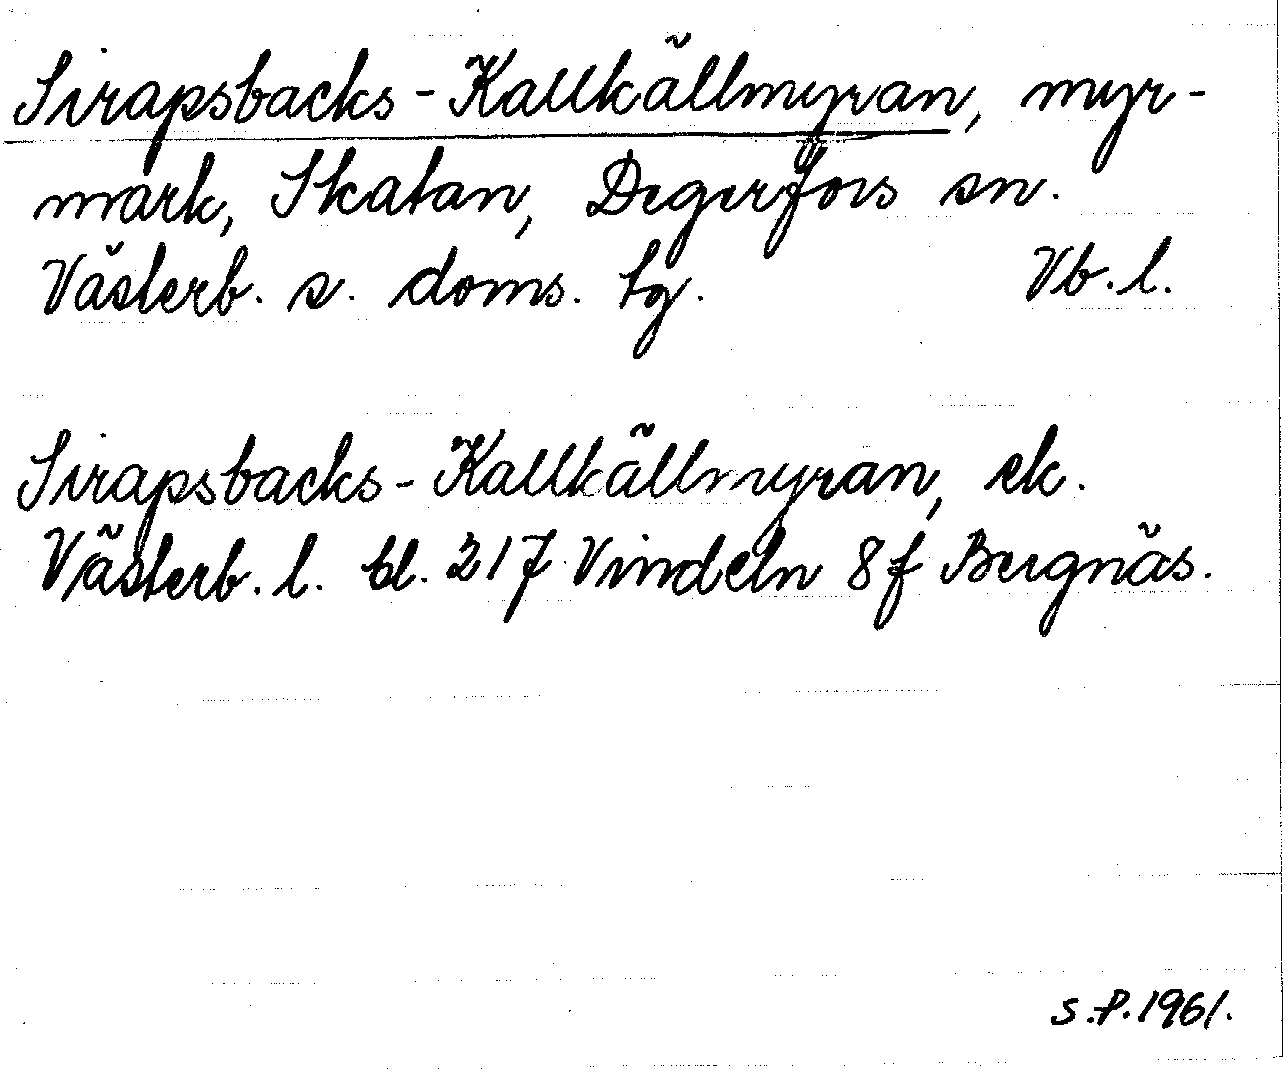 Sirapsbacks-Kallkällmyran, myr-
mark, Skatan, Degerfors sn.
Västerb. s. doms. tg. Vb. l.
Sirapsbacks-Kallkällmyran, ek.
Västerb. l. bl. 217 Vindeln 8f Bergnäs.
S.P. 1961.